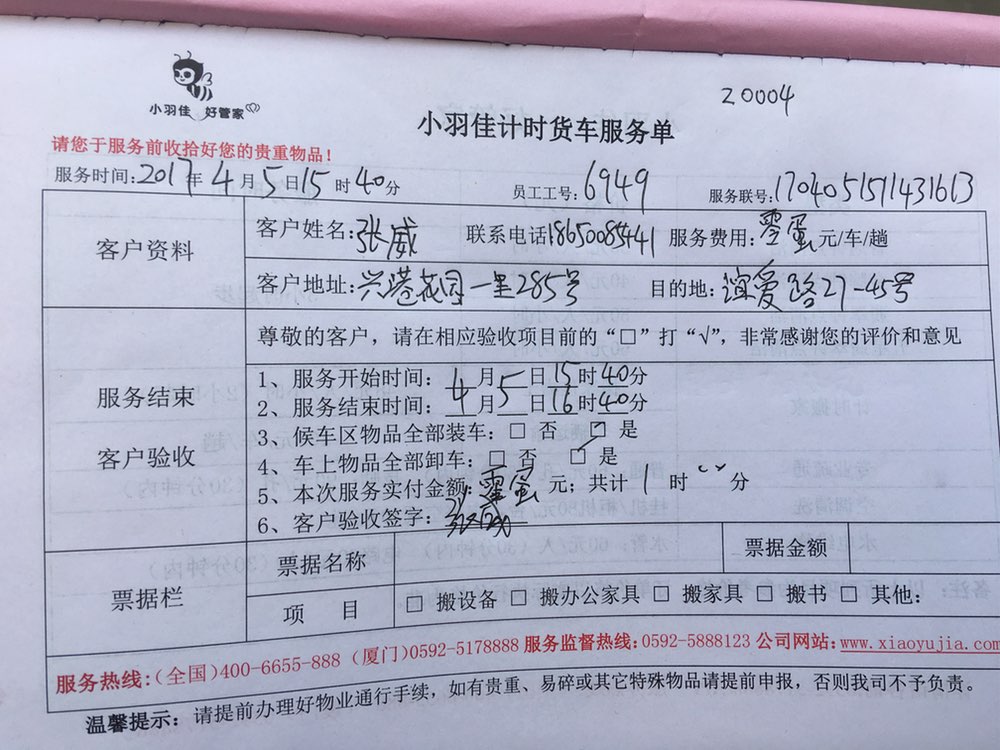 20004
小羽佳 好管家
小羽佳计时货车服务单
请您于服务前收拾好您的贵重物品！
服务时间:2017年4月5日15时40分 员工工号:6949 服务联号:170405151143 1613
客户资料
客户姓名:张威 联系电话18650085441 服务费用:零蛋元/车/趟
客户地址:兴港花园一里285号 目的地:谊爱路27-45号
服务结束
客户验收
尊敬的客户，请在相应验收项目前的“□”打“√”，非常感谢您的评价和意见
1、服务开始时间：4月5日15时40分
2、服务结束时间：4月5日16时40分
3、候车区物品全部装车：□ 否 ☑ 是
4、车上物品全部卸车：□ 否 □ 是
5、本次服务实付金额:零蛋元；共计1时 分
6、客户验收签字:张威
票据栏
票据名称 票据金额
项 目 □ 搬设备 □ 搬办公家具 □ 搬家具 □ 搬书 □ 其他：
服务热线:(全国)400-6655-888 (厦门)0592-5178888 服务监督热线:0592-5888123 公司网站:www.xiaoyujia.com
温馨提示：请提前办理好物业通行手续，如有贵重、易碎或其它特殊物品请提前申报，否则我司不予负责。